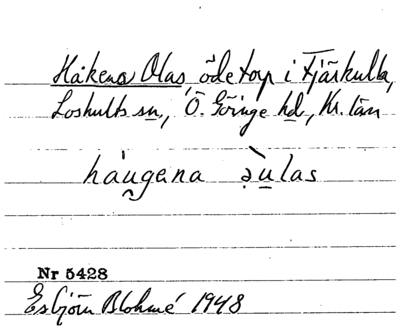 Håkens Olas, ödetorp i Fjärkulla,
Loshults sn, Ö. Göinge hd, Kr. län
háu̯gena ə̣̀u̲las
Nr 5428
Esbjörn Blohmé 1948